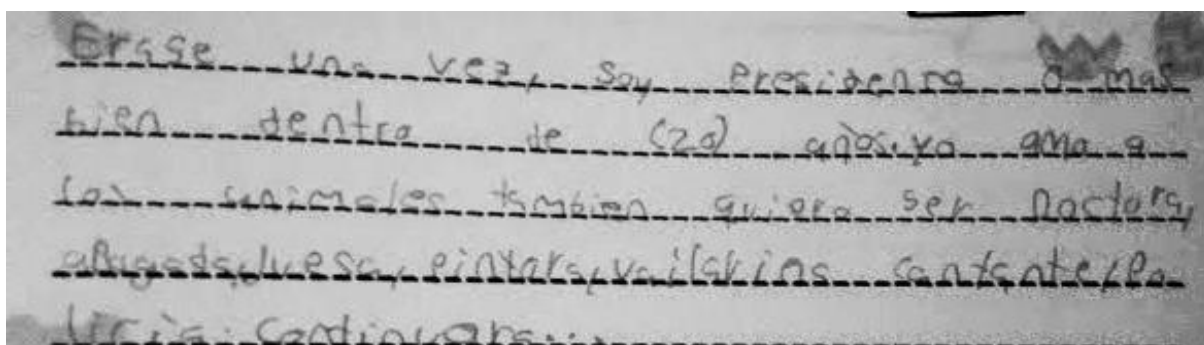 Erase una vez, soy Presidenta o mas
bien dentro de (20) años. yo amo a
los animales tambien quiero ser Doctora,
abogada, juesa, pintora, vailarina cantante, po-
licia. Continuara...